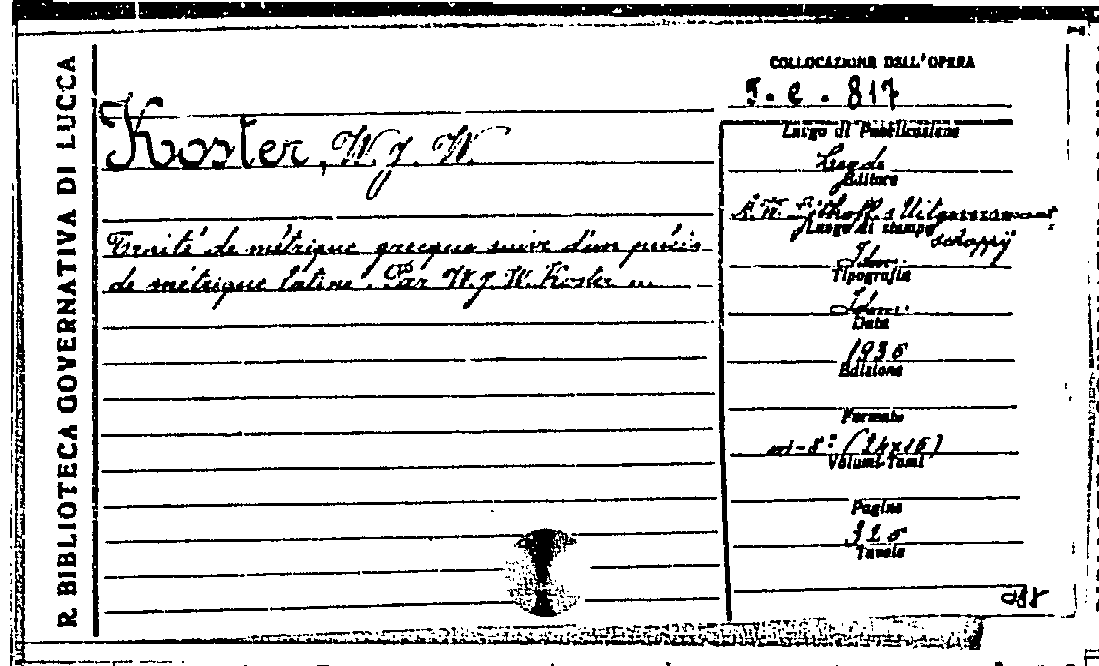 R. BIBLIOTECA GOVERNATIVA DI LUCCA
COLLOCAZIONE DELL'OPERA
T. e. 817
Koster, W. J. W.
Traité de métrique grecque suivi d'un précis
de métrique latine. Par W. J. W. Koster ...
Luogo di Pubblicazione
Leyde
Editore
A. W. Sijthoff's Uitgevers
schappij
Luogo di stampa
Idem.
Tipografia
Idem.
Data
1936
Edizione
Formato
in-8° (24x16)
Volumi-Tomi
Pagine
Tavole